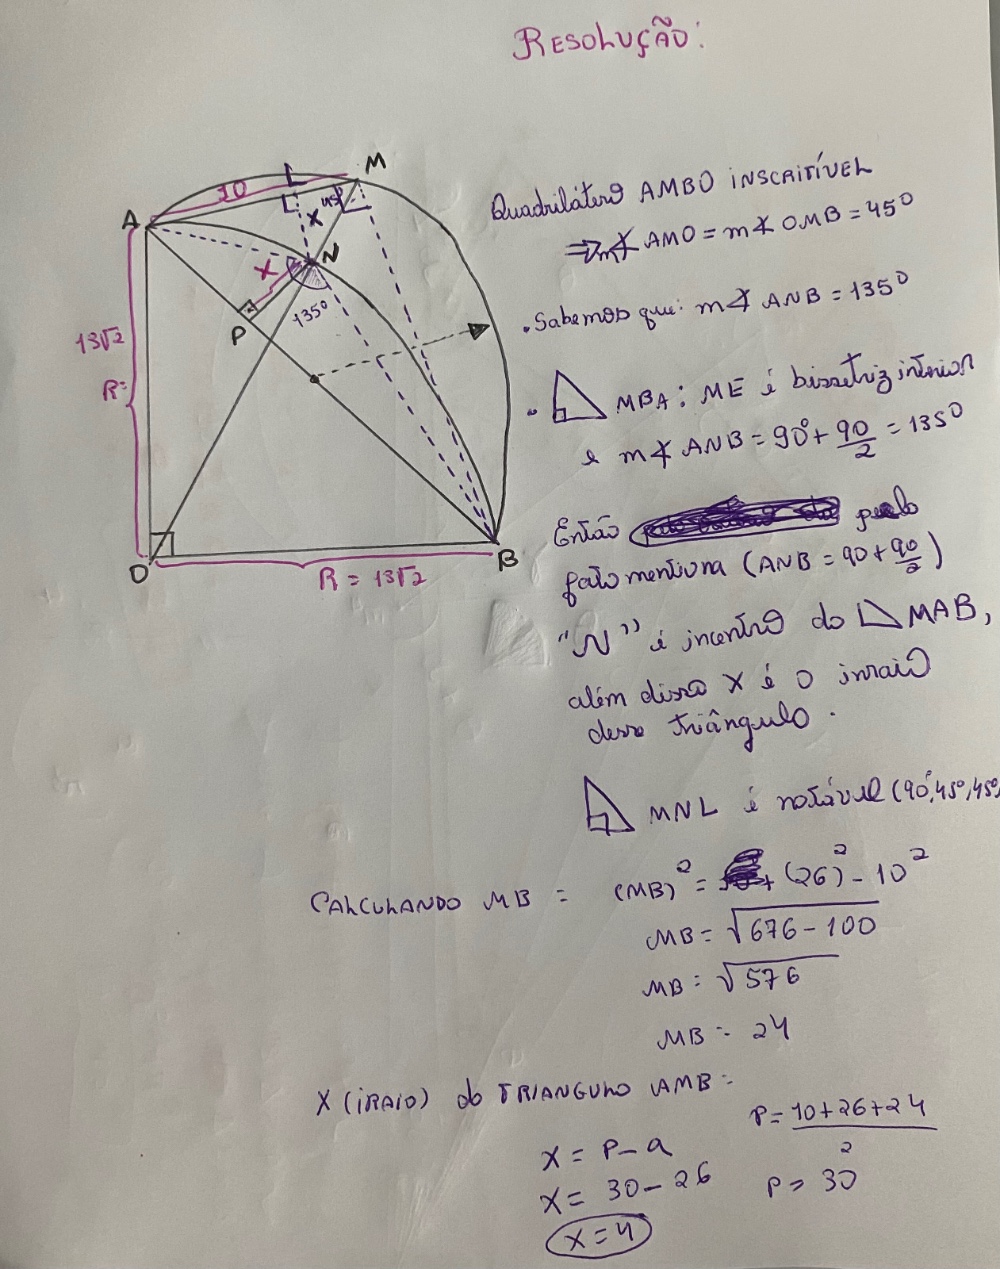 RESOLUÇÃO:
M
L
10
A
X
45º
N
X
P
135º
13√2
R=
O
R = 13√2
B
Quadrilátero AMBO INSCRITÍVEL
⇒ m∡ AMO = m∡ OMB = 45º
. Sabemos que: m∡ ANB = 135º
. MBA: ME é bissetriz interior
e m∡ ANB = 90º + 90/2 = 135º
Então pelo
fato mentiona (ANB = 90 + 90/2)
"N" é incentro do MAB,
além disso X é o inraio
desse triângulo.
MNL é notável (90º, 45º, 45º
CALCULANDO MB = (MB)² = (26)² - 10²
MB = √676 - 100
MB = √576
MB = 24
X (iRAIO) do TRIANGULO AMB =
P = 10+26+24
2
X = P - a
X = 30 - 26
P = 30
X = 4